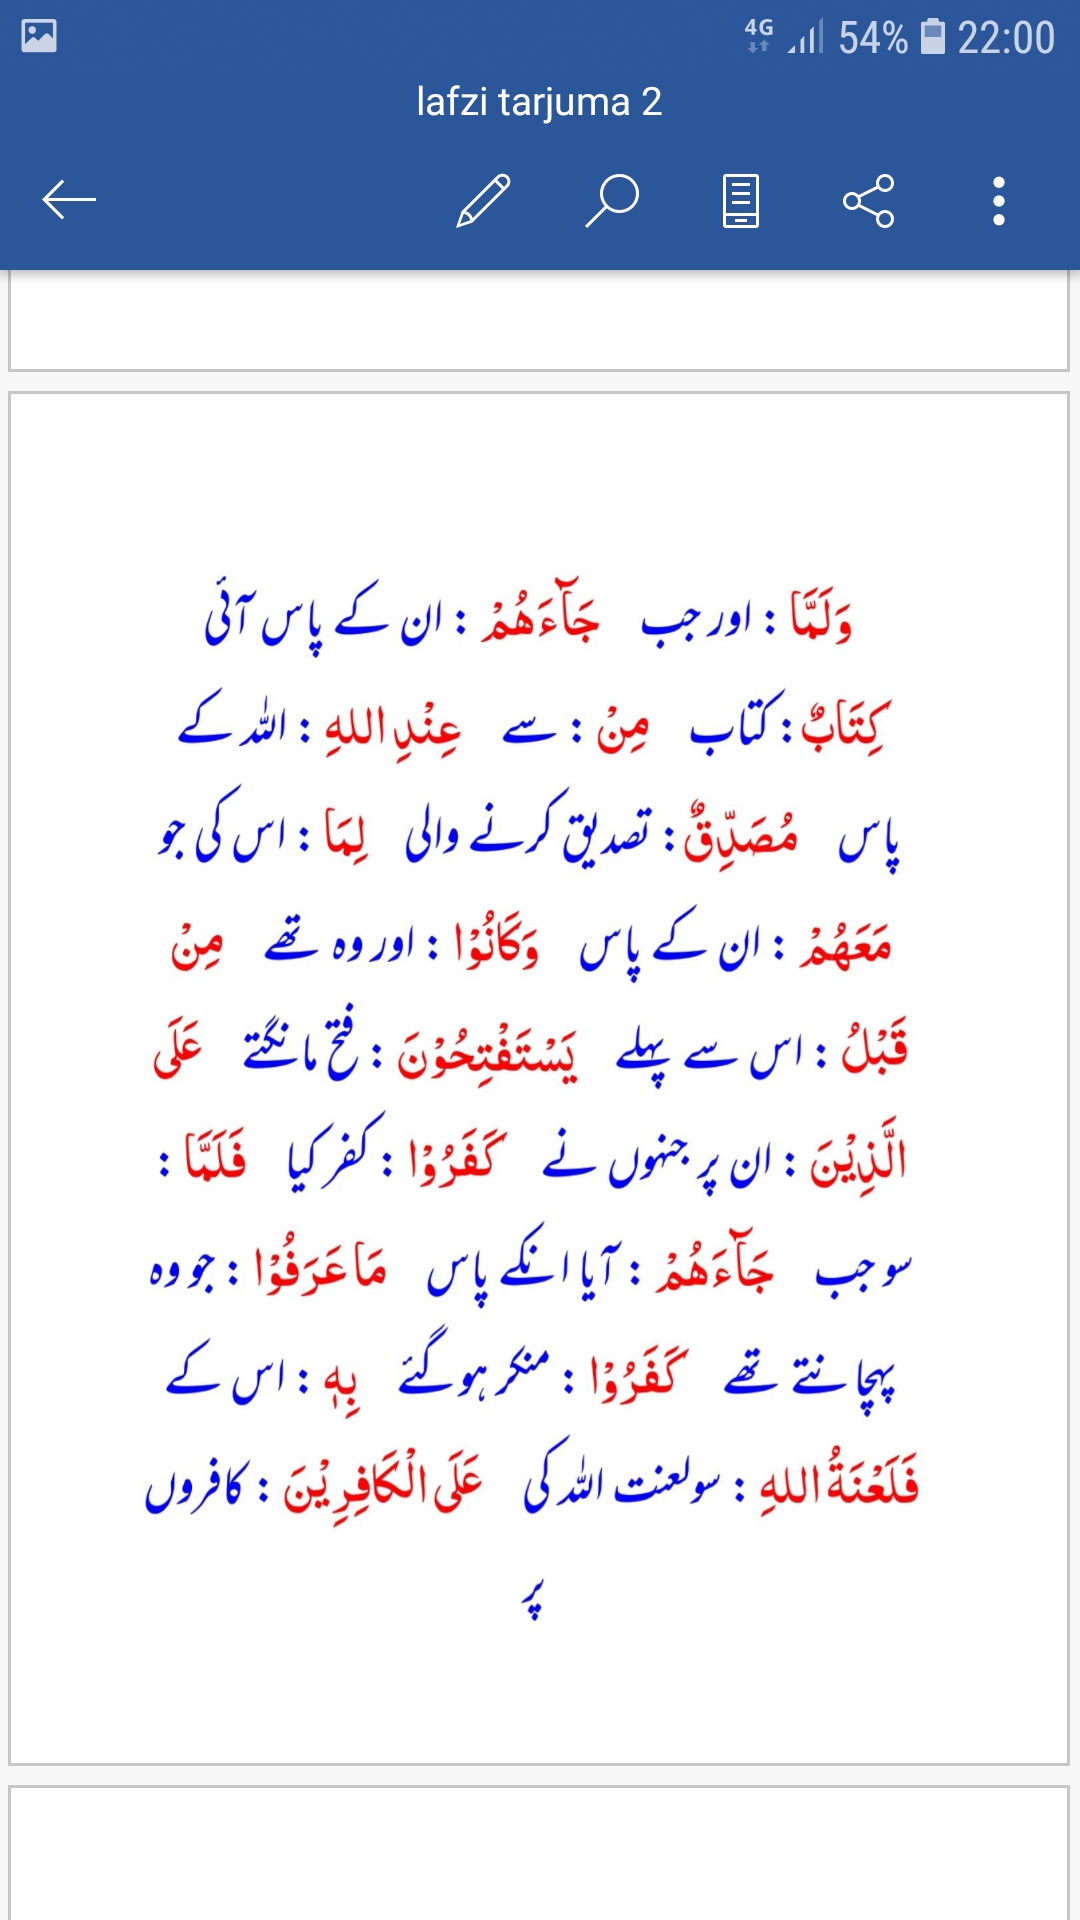 4G 54% 22:00
lafzi tarjuma 2
وَلَمَّا : اور جب جَآءَهُمْ : ان کے پاس آئی
كِتَابٌ : کتاب مِنْ : سے عِنْدِ اللهِ : اللہ کے
پاس مُصَدِّقٌ : تصدیق کرنے والی لِمَا : اس کی جو
مَعَهُمْ : ان کے پاس وَكَانُوْا : اور وہ تھے مِنْ
قَبْلُ : اس سے پہلے يَسْتَفْتِحُوْنَ : فتح مانگتے عَلَى
الَّذِيْنَ : ان پر جنہوں نے كَفَرُوْا : کفر کیا فَلَمَّا :
سو جب جَآءَهُمْ : آیا انکے پاس مَا عَرَفُوْا : جو وہ
پہچانتے تھے كَفَرُوْا : منکر ہوگئے بِهٖ : اس کے
فَلَعْنَةُ اللهِ : سو لعنت اللہ کی عَلَى الْكَافِرِيْنَ : کافروں
پر